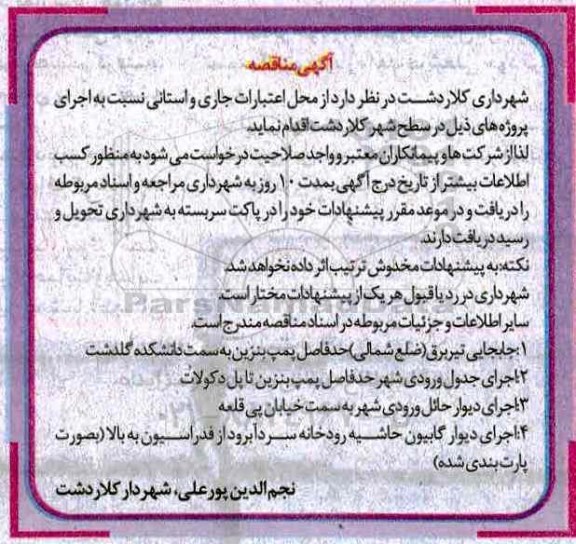 آگهی مناقصه
شهرداری کلاردشت در نظر دارد از محل اعتبارات جاری و استانی نسبت به اجرای
پروژه های ذیل در سطح شهر کلاردشت اقدام نماید.
لذا از شرکت ها و پیمانکاران معتبر و واجد صلاحیت درخواست می شود به منظور کسب
اطلاعات بیشتر از تاریخ درج آگهی بمدت ۱۰ روز به شهرداری مراجعه و اسناد مربوطه
را دریافت و در موعد مقرر پیشنهادات خود را در پاکت سربسته به شهرداری تحویل و
رسید دریافت دارند.
نکته: به پیشنهادات مخدوش ترتیب اثر داده نخواهد شد.
شهرداری در رد یا قبول هر یک از پیشنهادات مختار است.
سایر اطلاعات و جزئیات مربوطه در اسناد مناقصه مندرج است.
۱: جابجایی تیر برق (ضلع شمالی) حدفاصل پمپ بنزین به سمت دانشکده گلدشت
۲: اجرای جدول ورودی شهر حدفاصل پمپ بنزین تا پل دکولات
۳: اجرای دیوار حائل ورودی شهر به سمت خیابان پی قلعه
۴: اجرای دیوار گابیون حاشیه رودخانه سردآبرود از فدراسیون به بالا (بصورت
پارت بندی شده)
نجم الدین پورعلی، شهردار کلاردشت